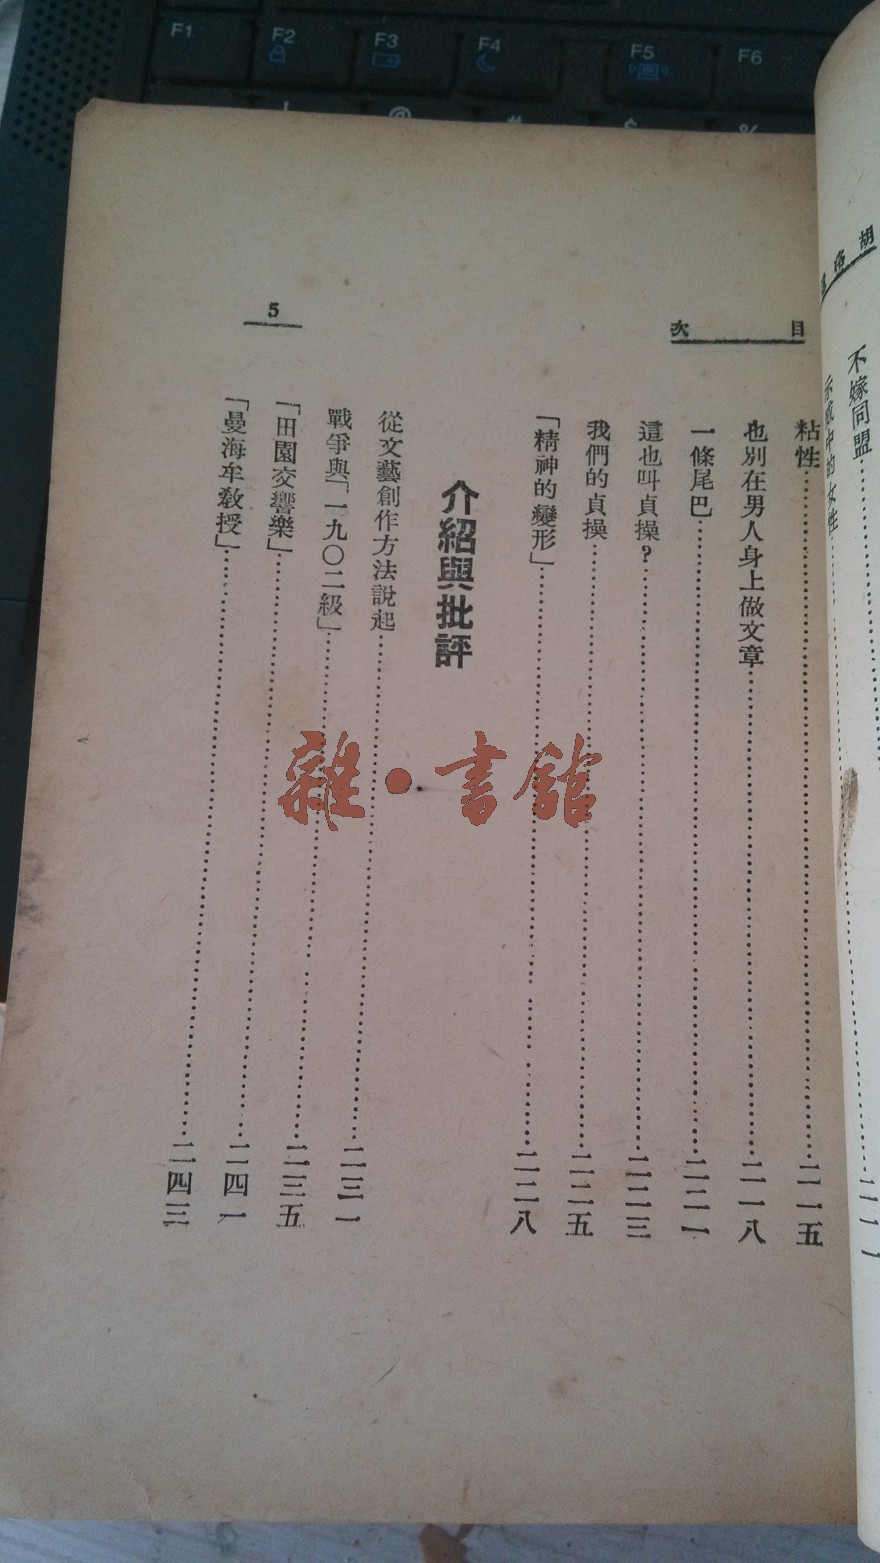 F1
F2
F3
F4
F5
F6
@
#
$
%
胡
不嫁同盟
中的女性
二一一
目次
粘性 二一五
也別在男人身上做文章 二一八
一條尾巴 二二一
這也叫貞操？ 二二三
我們的貞操 二二五
「精神的變形」 二二八
介紹與批評
從文藝創作方法說起 二三一
戰爭與「一九〇二級」 二三五
「田園交響樂」 二四一
「曼海牟教授」 二四三
5
雜·書館